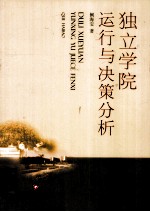 独立学院
运行与决策分析
DULI XUEYUAN
YUNXING YU JUECE FENXI
著